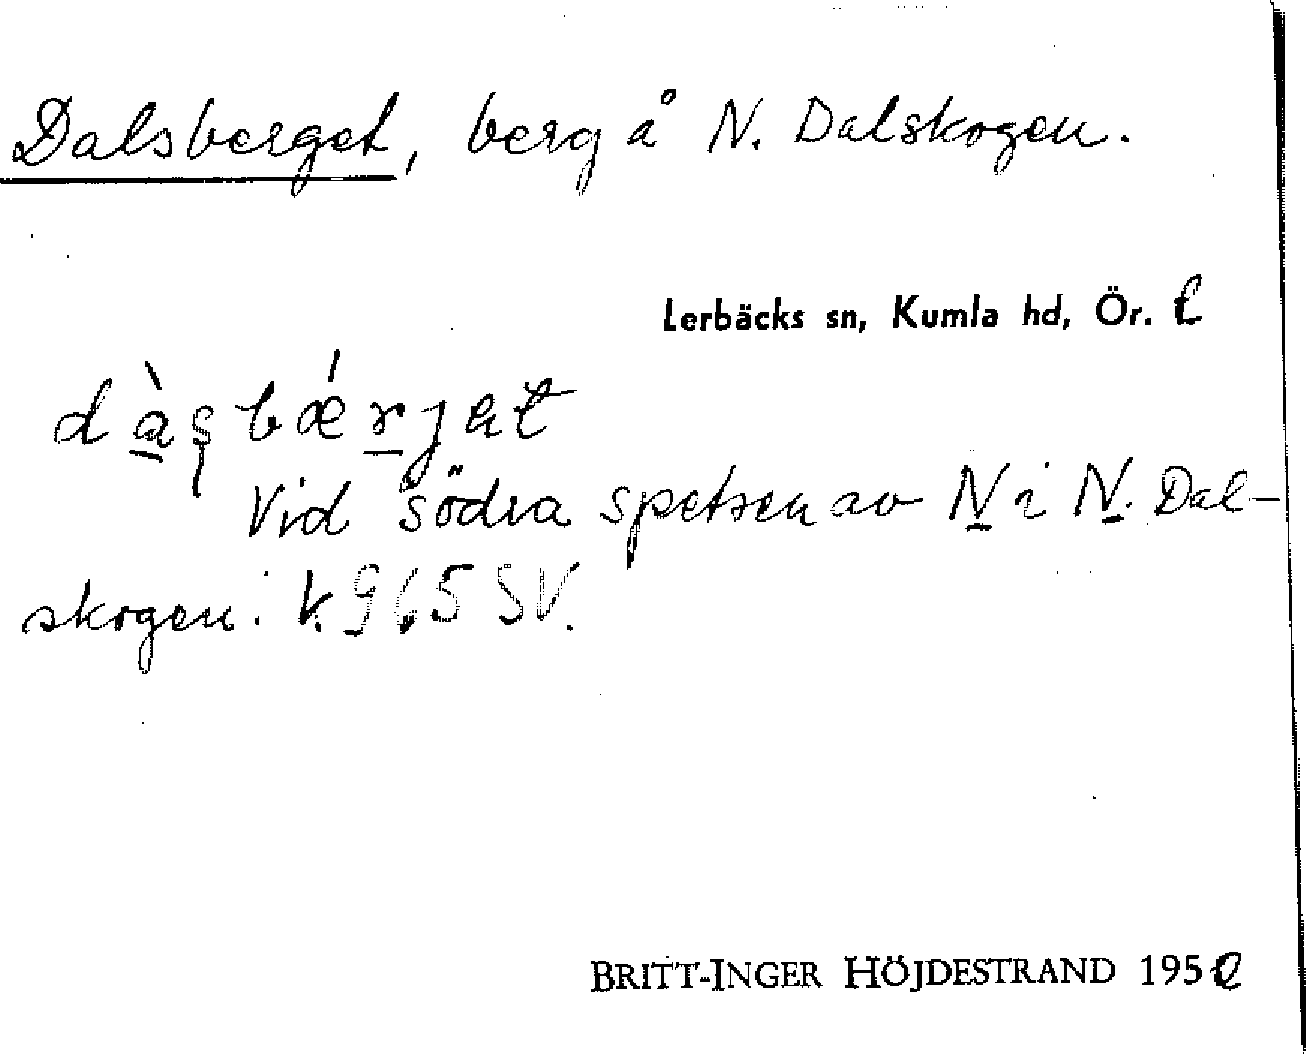 Dalsberget, berg å N. Dalskogen.
Lerbäcks sn, Kumla hd, Ör. l
dàşbǽrjət
Vid södra spetsen av N i N. Dal-
skogen. V. 965 SV.
BRITT-INGER HÖJDESTRAND 195